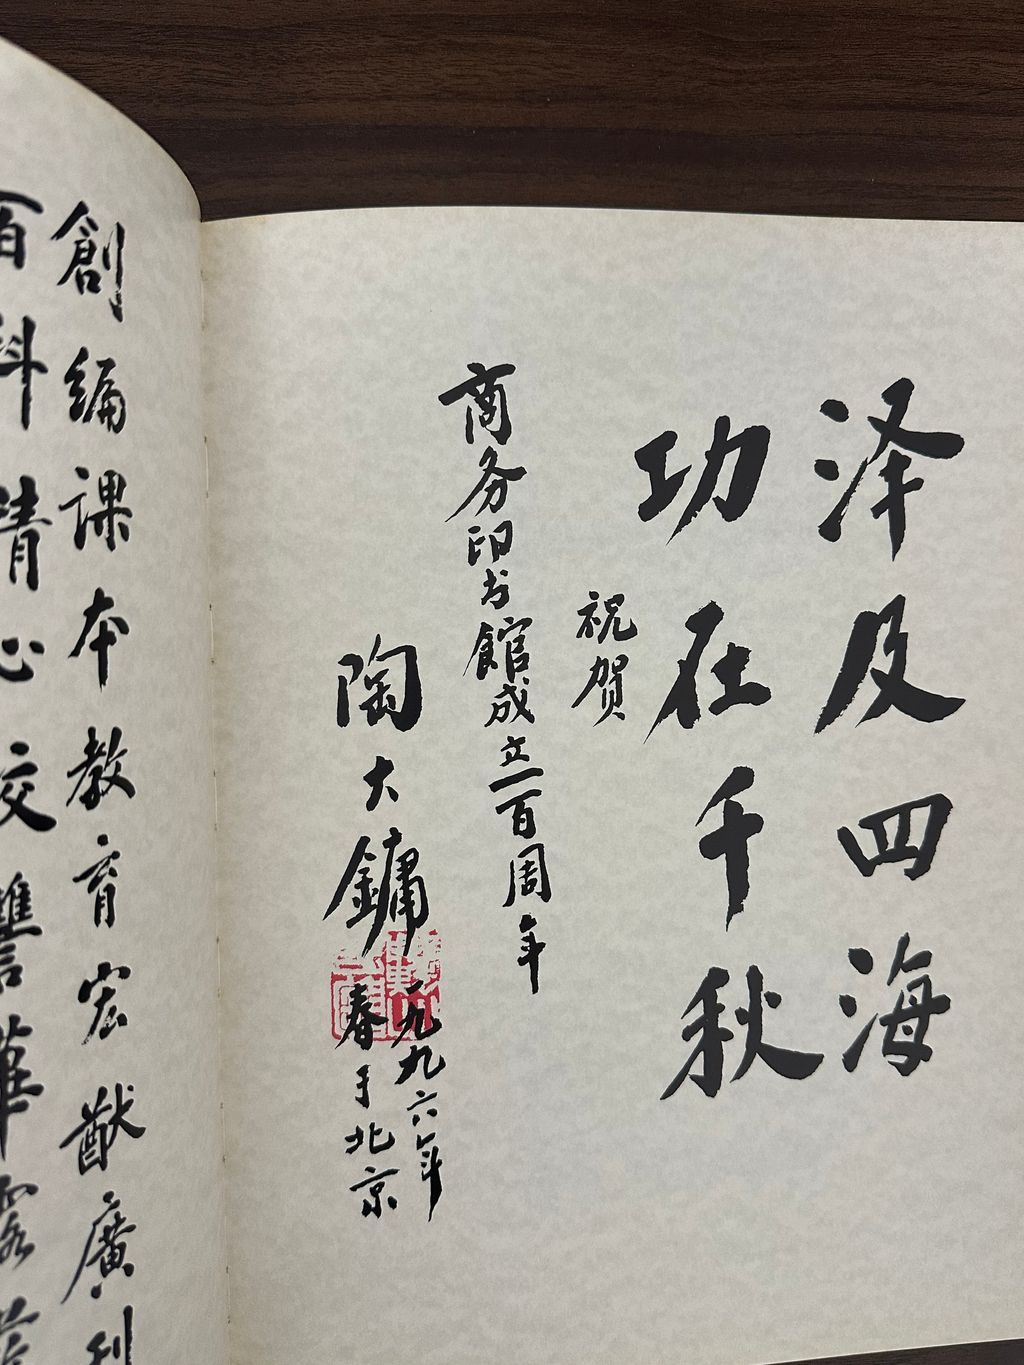 泽及四海
功在千秋
祝贺
商务印书館成立一百周年
陶大鏞
一九九六年
春于北京
創編課本教育宏猷廣利
百科清心校讐華露